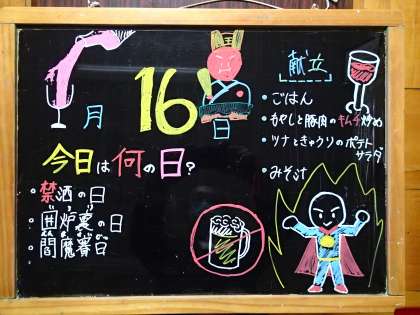 月 16 日
今日は何の日?
・禁酒の日
いろり
・囲炉裏の日
・閻魔賽日
献立
・ごはん
・もやしと豚肉のキムチ炒め
・ツナときゅうりのポテト
サラダ
・みそ汁